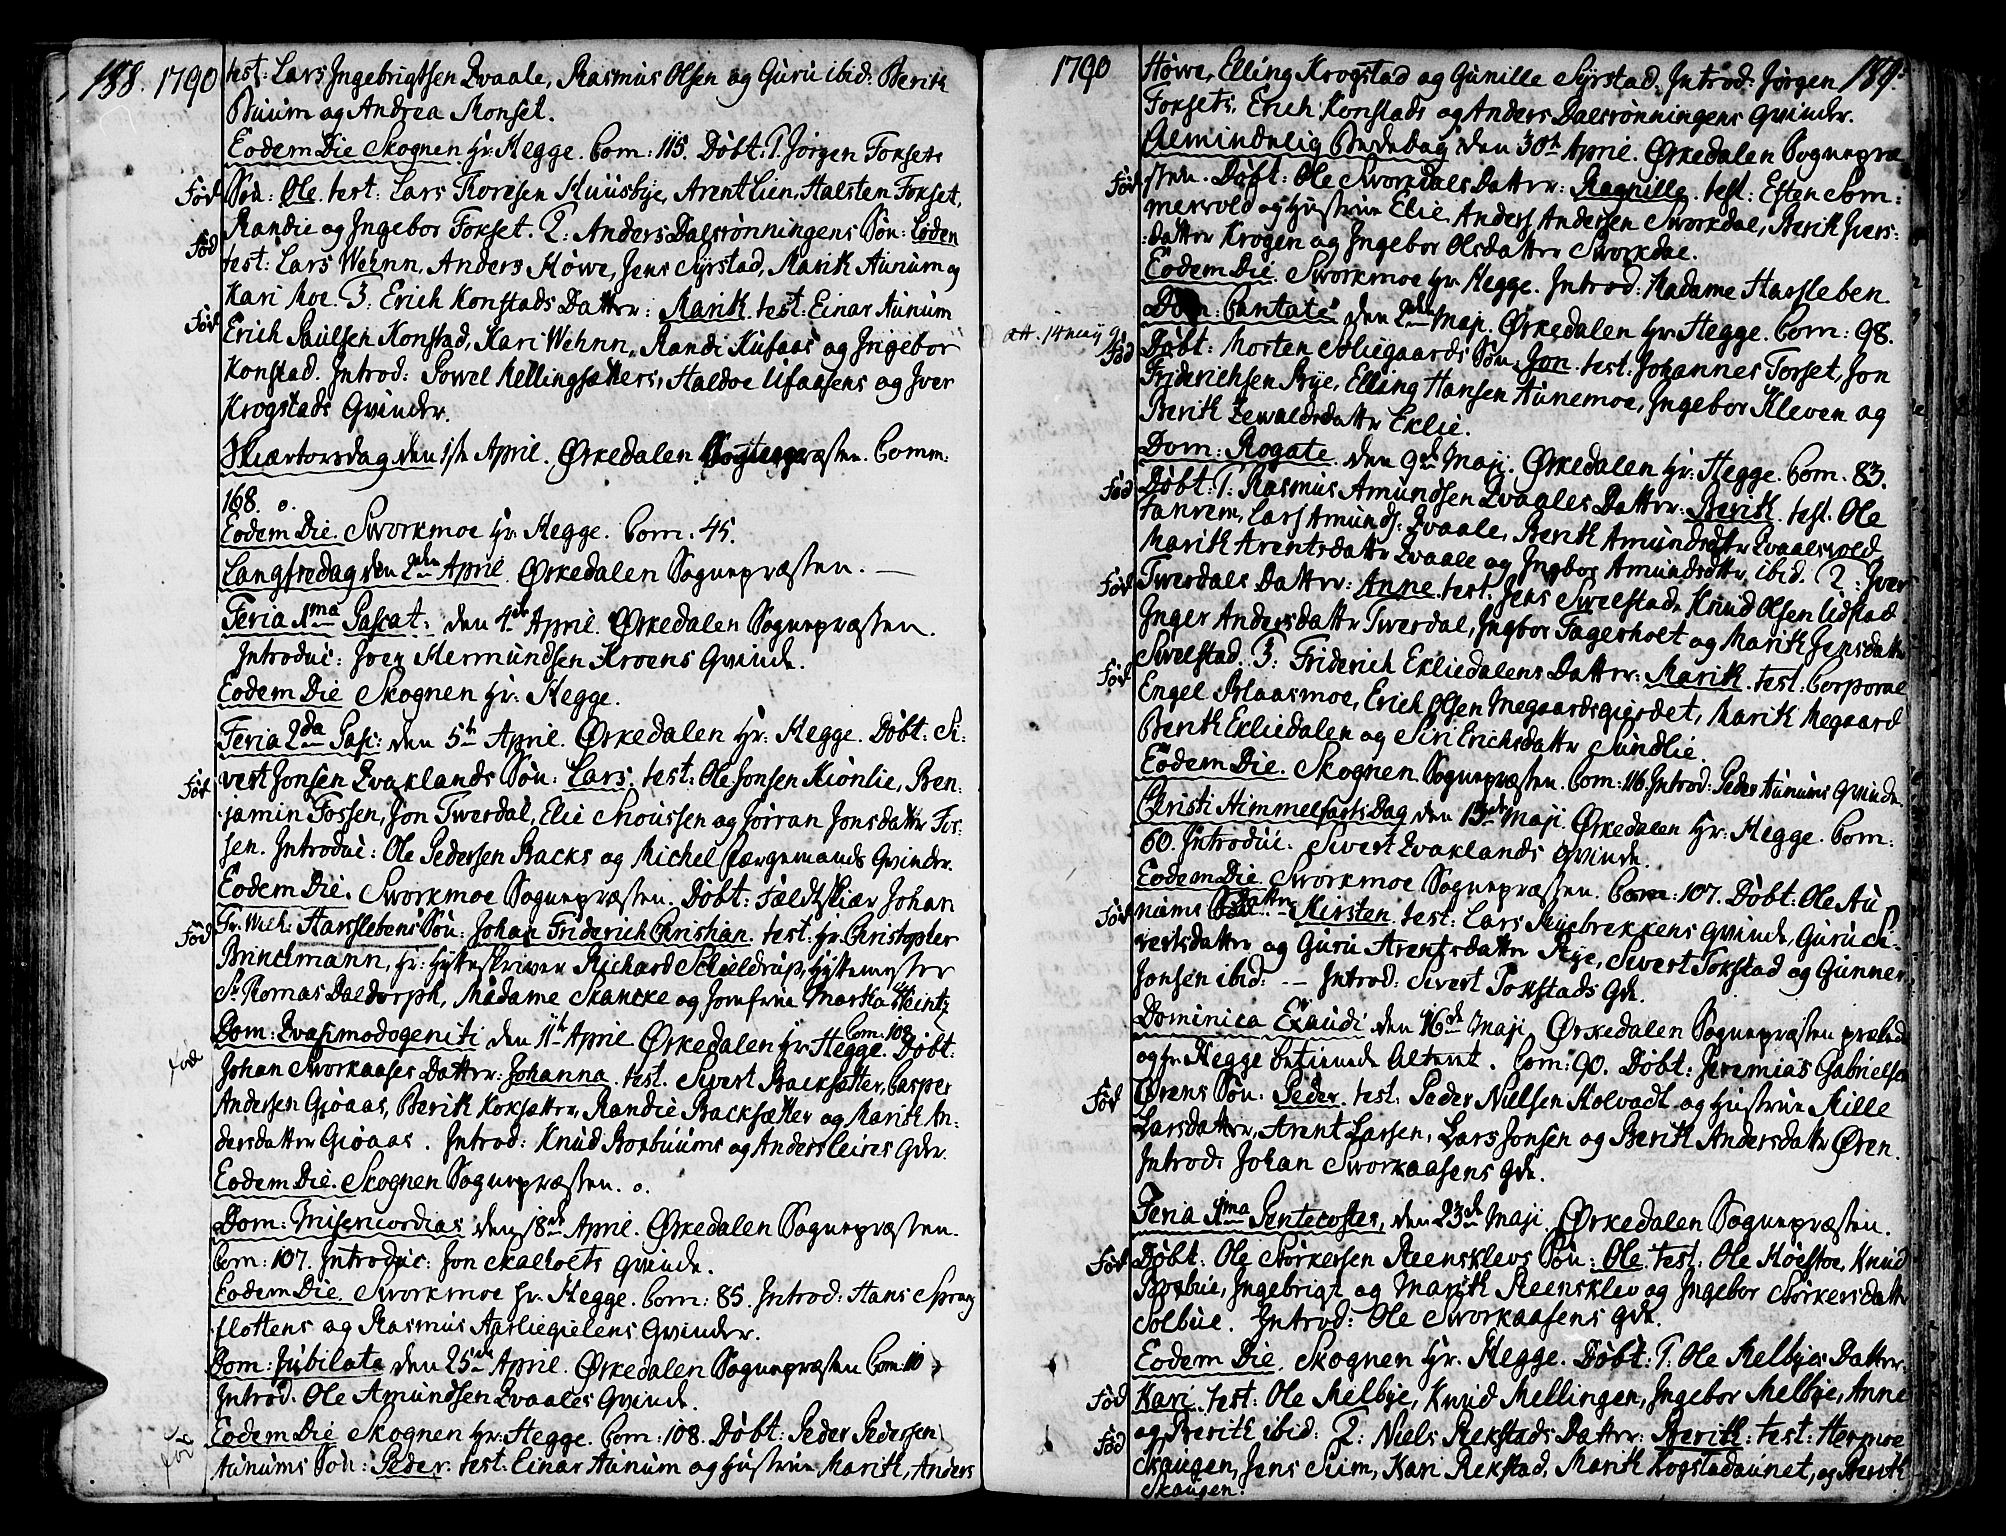 188. 1790
test: Lars Ingebrigtsen Qvaale, Rasmus Olsen og Guru ibid: Berith
Buum og Andrea Monset.
Eodem Die Skognen Hr: Hegge. Com: 115. Døbt: 1. Jørgen Forsets
Fød Søn: Ole. test: Lars Toresen Kuusbye, Arent Lien, Halsten Forset,
Randie og Ingebor Forset. 2: Anders Dalsrønningens Søn: Loden
Fød
test: Lars Wehnn, Anders Høwe, Jens Syrstad, Marith Aunum og
Kari Moe. 3. Erich Konstads Datter: Marith. test: Einar Aunum
Fød
Erich Paulsen Konstad, Kari Wehnn, Randi Kufaas og Ingebor
Konstad. Introd: Powel Mellingsæters, Haldoe Ufaasens og Iver
Krogstads Qvinder.
Skiærtorsdag den 1ste April. Ørkedalen Sognepræsten. Comm:
168. o.
Eodem Die. Sworkmoe Hr: Hegge. Com: 45.
Langfredag den 2den April. Ørkedalen Sognepræsten. —
Feria 1ma Pascat: den 4de April. Ørkedalen Sognepræsten.
Introduc: Iver Hermundsen Kroens Qvinde.
Eodem Die Skognen Hr: Hegge.
Feria 2da Pasc: den 5te April. Ørkedalen Hr: Hegge. Døbt: Si-
Fød vert Jonsen Qvaklands Søn: Lars. test: Ole Jonsen Kionlie, Ben-
jamin Fossen, Jon Twerdal, Elie Snoussen og Jørran Jonsdatter Fos-
sen. Introduc: Ole Pedersen Backs og Michel Færgemands Qvinder.
Eodem Die. Sworkmoe Sognepræsten. Døbt: Feldtskiær Johan
Fød Fr: Wilh: Harslebens Søn: Johan Friderich Christian. test: Hr: Christopher
Brinchmann, Hr: Hytteskriver Richard Schieldrup, Hyttemester
Sr Thomas Daldorph, Madame Skancke og Jomfrue Martha Heintz
Com: 108.
Dom: Qvasimodogeniti den 11te April Ørkedalen Hr: Hegge. Døbt:
Fød Johan Sworkaases Datter: Johanna. test. Sivert Backsætter, Casper
Andersen Gioaas, Berith Koksætter, Randie Backsætter og Marith An-
dersdatter Gioaas. Introd: Knud Borbuums og Anders Leires Qder.
Eodem Die. Skognen Sognepræsten. o.
Dom: Misericordias den 18de April. Ørkedalen Sognepræsten.
Com: 107. Introduc: Jon Skalholts Qvinde.
Eodem Die. Sworkmoe Hr. Hegge. Com: 85. Introd: Hans Sprang
flottens og Rasmus Aarliegielens Qvinder.
Dom: Jubilate den 25de April. Ørkedalen Sognepræsten Com:
Introd: Ole Amundsen Qvaales Qvinde.
Eodem Die Skognen Hr: Hegge. Com: 108. Døbt: Peder Pedersen
Fød Aunums Søn: Peder. test: Einar Aunum og Hustrue Marith, Anders
1790 189.
Høwe, Elling Krogstad og Gunille Syrstad. Introd: Jørgen
Forsets, Erich Konstads og Anders Dalsrønningens Qvinder.
Almindelig Bededag den 30te April. Ørkedalen Sognepræ-
Fød sten. Døbt: Ole Sworkdals Datter: Ragnille. test: Esten Som-
merwold og Hustrue Elie, Anders Andersen Sworkdal, Berith Ivers-
datter Krogen og Ingebor Olsdatter Sworkdal.
Eodem Die. Sworkmoe Hr. Hegge. Introd: Madame Harsleben.
Dom: Cantate den 2den Maji. Ørkedalen Hr: Hegge. Com: 98.
Fød Døbt: Morten Soliegaards Søn: Jon. test: Johannes Forset, Jon
Friderichsen Rye, Elling Hansen Aunemoe, Ingebor Kleven og
Berith Zewaldsdatter Eklie.
Dom: Rogate. den 9de Maji. Ørkedalen Hr: Hegge. Com: 83.
Fød Døbt: 1. Rasmus Amundsen Qvaales Datter: Berith. test. Ole
Fanrem, Lars Amunds: Qvaale, Berith Amundsdatter Qvaalswold
Marith Arentsdatter Qvaale og Ingbor Amundsdatter ibid. 2: Iver
Fød Twerdals Datter: Anne. test. Jens Swelstad, Knud Olsen Udstad
Inger Andersdatter Twerdal, Ingbor Fagerholt og Marith Jensdatter
Swelstad. 3: Friderich Ekliedalens Datter: Marith. test: Corporal
Fød
Engel Blaasmoe, Erich Olsen Megaardsgierdet, Marith Megaard
Berith Ekliedalen og Siri Erichsdatter Sundlie.
Eodem Die. Skognen Sognepræsten. Com: 116. Introd: Peder Aunums Qvinde.
Christi Himmelfarts Dag den 13de Maji. Ørkedalen Hr: Hegge. Com:
60. Introduc: Sivert Qvaklands Qvinde.
Eodem Die Sworkmoe Sognepræsten. Com: 107. Døbt: Ole Au
Fød nums Datter Kirsten. test: Lars Ryebrekkens Qvinde, Guru Si-
vertsdatter og Guru Arentsdatter Rye, Sivert Torstad og Gunner
Jonsen ibid: -- Introd: Sivert Torstads Qde.
Dominica Exaudi den 16de Maji. Ørkedalen Sognepræsten præked
og Hr: Hegge betiende Alteret. Com: 90. Døbt: Jeremias Gabrielsen
Fød Ørens Søn: Peder. test: Peder Nielsen Kolvadt og Hustrue Kille
Larsdatter, Arent Larsen, Lars Jonsen og Berith Andersdatter Øren.
Introd: Johan Sworkaasens Qde.
Feria 1ma Pentecostes, den 23de Maji. Ørkedalen Sognepræsten.
Fød Døbt: Ole Størkersen Reensklevs Søn: Ole. test. Ole Hoelstoe, Knud
Borbue, Ingebrigt og Marith Reensklev og Ingebor Størkersdatter
Solbue. Introd: Ole Sworkaasens Qde.
Eodem Die. Skognen Hr. Hegge. Døbt: 1. Ole Melbyes Datter:
Fød Kari. test: Ole Melbye, Knud Mellingen, Ingebor Melbye, Anne
Fød og Berith ibid: 2: Niels Rekstads Datter: Berith: test: Hermoe
Skaugen, Jens Sum, Kari Rekstad, Marith Hogstadaunet, og Berith
Skaugen.